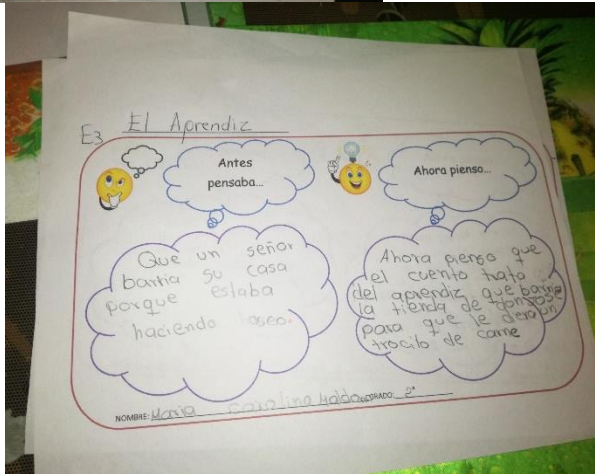 E3 El Aprendiz
Antes
pensaba...
Ahora pienso...
Que un señor
barria su casa
porque estaba
haciendo aseo.
Ahora pienso que
el cuento trata
del aprendiz que barria
la tienda de
para que le dera un
trocito de carne
NOMBRE: Maria carolina GRADO: 2°